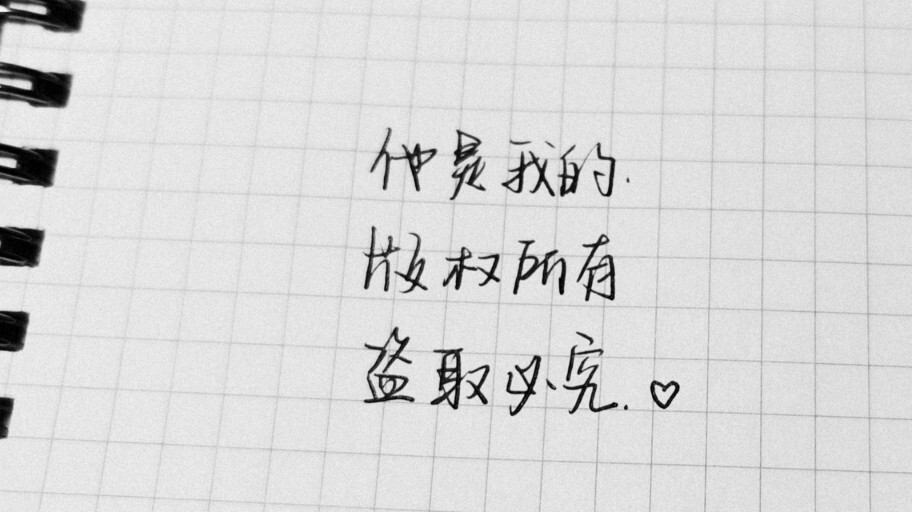 他是我的.
版权所有
盗取必究.♡